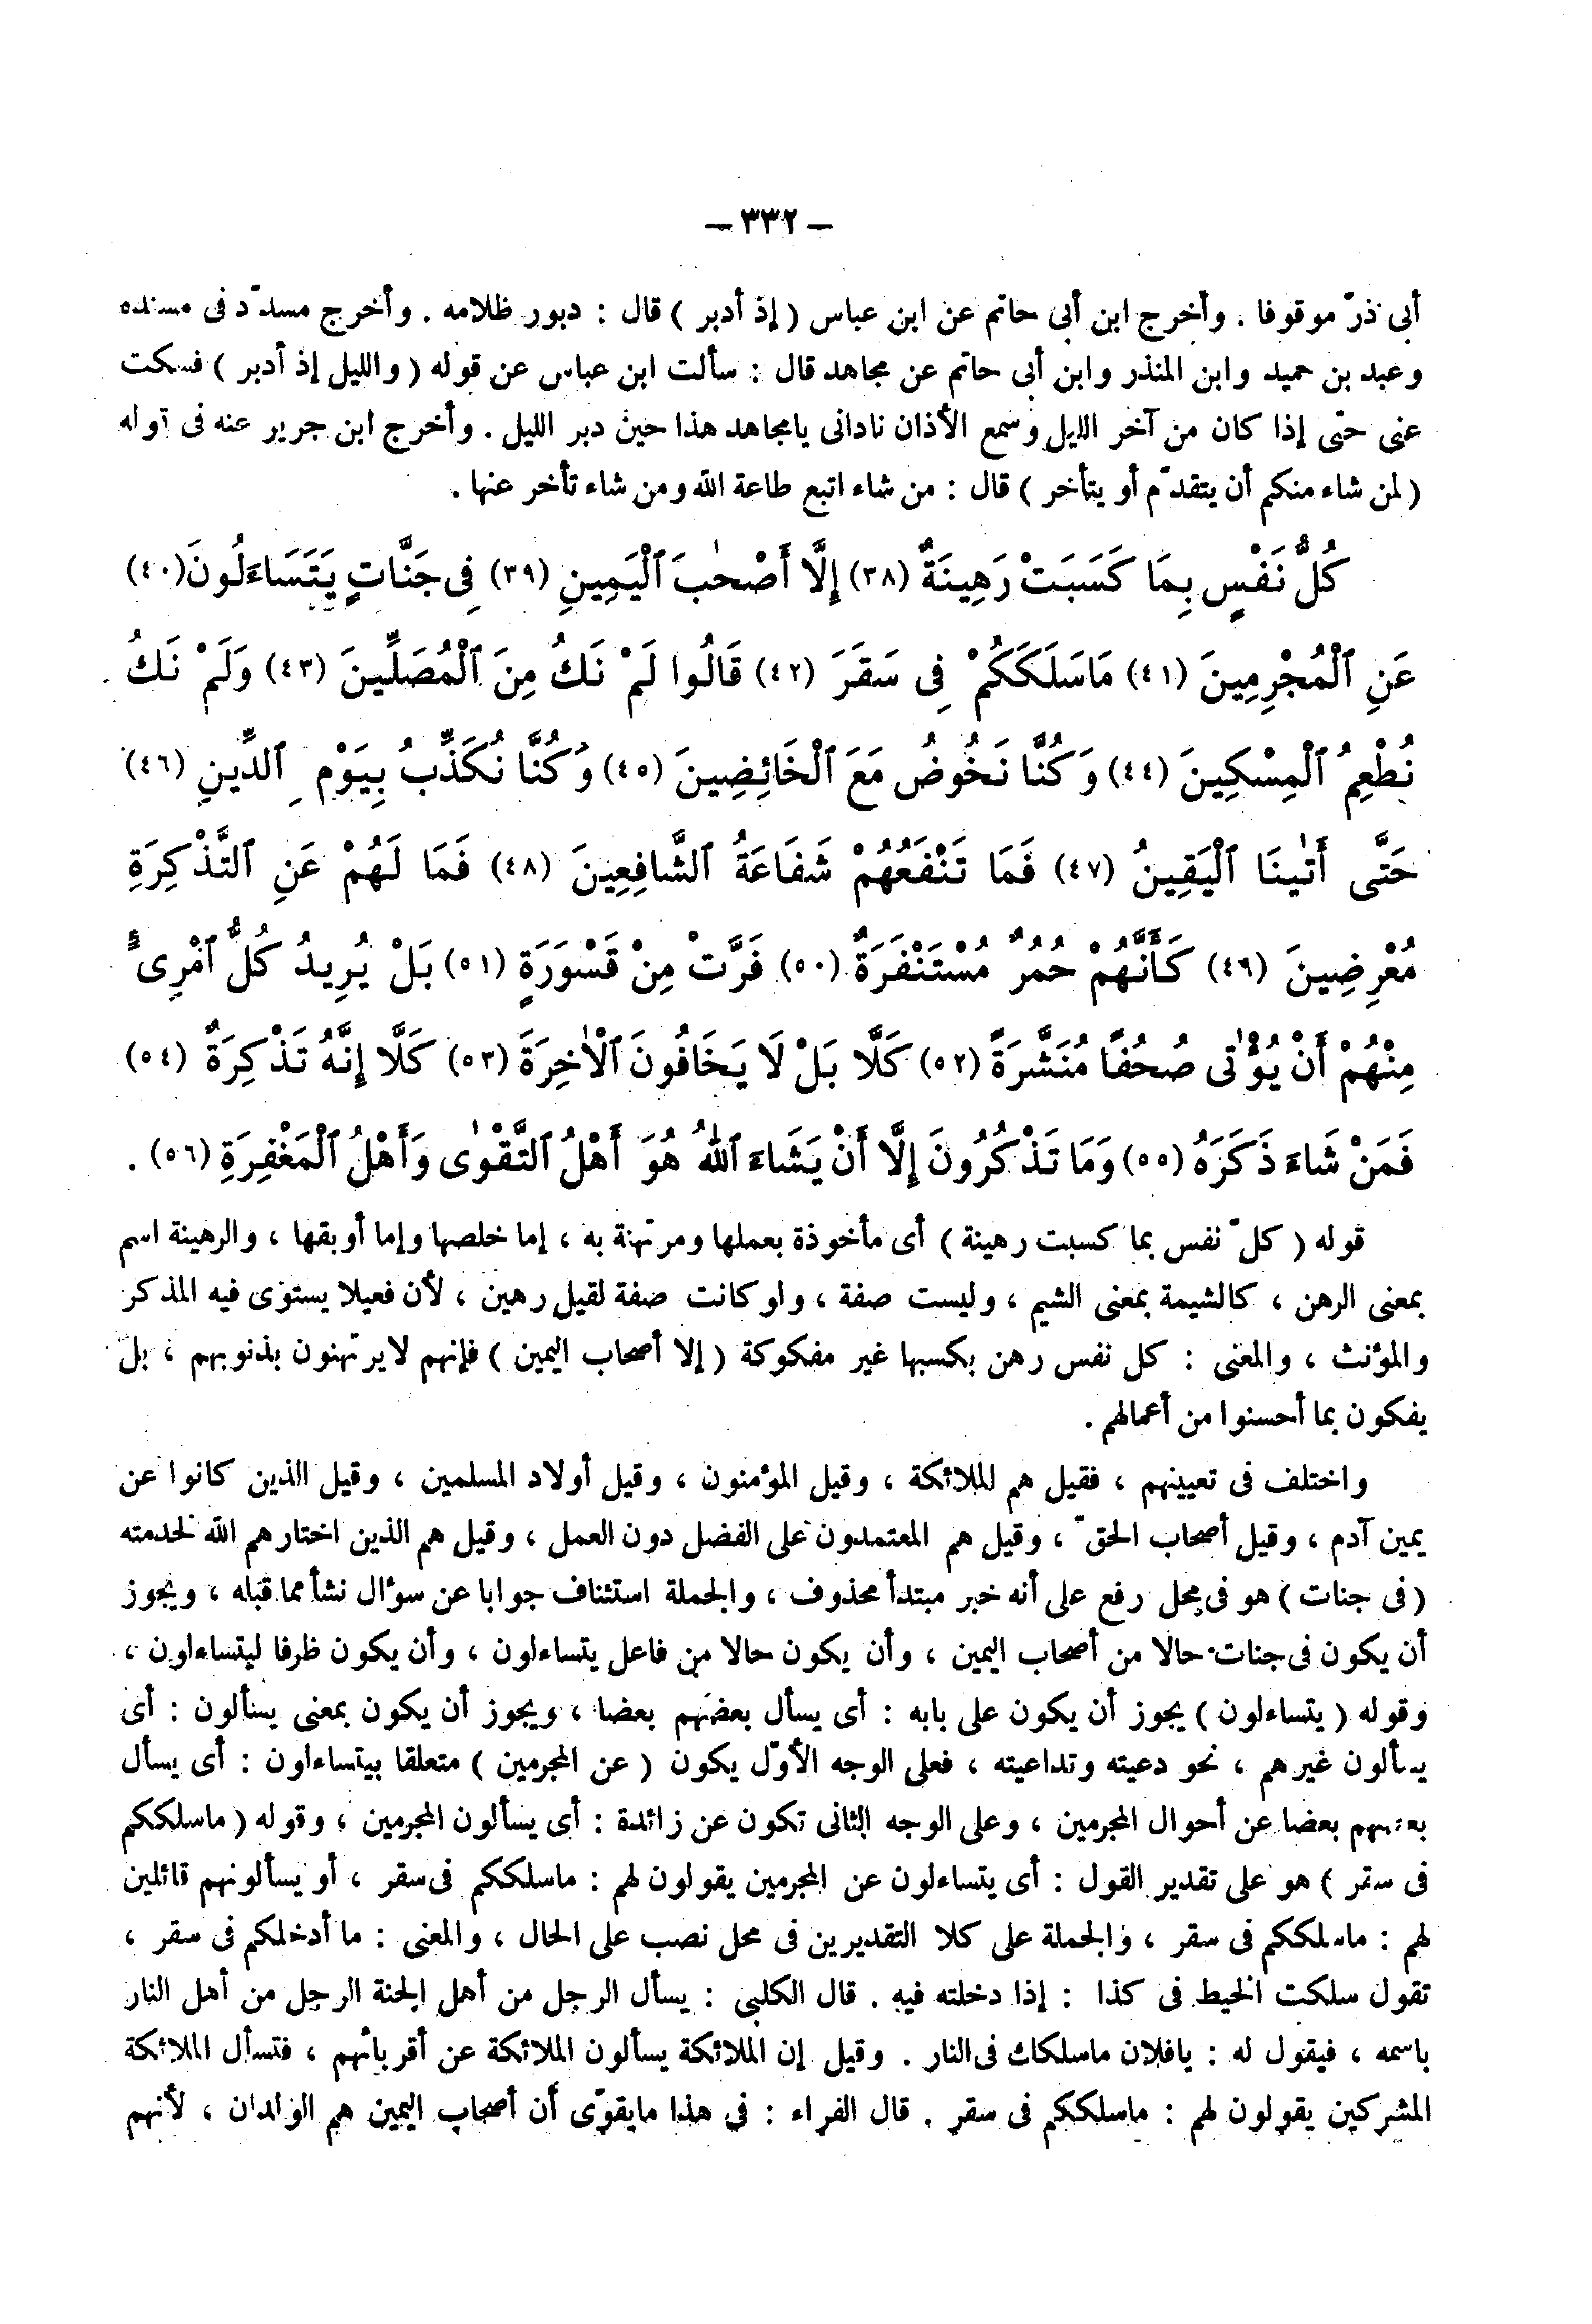 — ٣٣٢ —
أبى ذرّ موقوفا . وأخرج ابن أبى حاتم عن ابن عباس ( إذ أدبر ) قال : دبور ظلامه . وأخرج مسدّد فى مسنده
وعبد بن حميد وابن المنذر وابن أبى حاتم عن مجاهد قال : سألت ابن عباس عن قوله ( والليل إذ أدبر ) فسكت
عنى حتى إذا كان من آخر الليل وسمع الأذان نادانى يامجاهد هذا حين دبر الليل . وأخرج ابن جرير عنه فى قوله
( لمن شاء منكم أن يتقدّم أو يتأخر ) قال : من شاء اتبع طاعة الله ومن شاء تأخر عنها .
كُلُّ نَفْسٍ بِمَا كَسَبَتْ رَهِينَةٌ (٣٨) إِلَّا أَصْحٰبَ ٱلْيَمِينِ (٣٩) فِى جَنَّاتٍ يَتَسَاءَلُونَ (٤٠)
عَنِ ٱلْمُجْرِمِينَ (٤١) مَاسَلَكَكُمْ فِى سَقَرَ (٤٢) قَالُوا لَمْ نَكُ مِنَ ٱلْمُصَلِّينَ (٤٣) وَلَمْ نَكُ
نُطْعِمُ ٱلْمِسْكِينَ (٤٤) وَكُنَّا نَخُوضُ مَعَ ٱلْخَائِضِينَ (٤٥) وَكُنَّا نُكَذِّبُ بِيَوْمِ ٱلدِّينِ (٤٦)
حَتَّى أَتٰينَا ٱلْيَقِينُ (٤٧) فَمَا تَنْفَعُهُمْ شَفَاعَةُ ٱلشَّافِعِينَ (٤٨) فَمَا لَهُمْ عَنِ ٱلتَّذْكِرَةِ
مُعْرِضِينَ (٤٩) كَأَنَّهُمْ حُمُرٌ مُسْتَنْفَرَةٌ (٥٠) فَرَّتْ مِنْ قَسْوَرَةٍ (٥١) بَلْ يُرِيدُ كُلُّ ٱمْرِىءٍ
مِنْهُمْ أَنْ يُؤْتٰى صُحُفًا مُنَشَّرَةً (٥٢) كَلَّا بَلْ لَا يَخَافُونَ ٱلْاٰخِرَةَ (٥٣) كَلَّا إِنَّهُ تَذْكِرَةٌ (٥٤)
فَمَنْ شَاءَ ذَكَرَهُ (٥٥) وَمَا تَذْكُرُونَ إِلَّا أَنْ يَشَاءَ ٱللهُ هُوَ أَهْلُ ٱلتَّقْوٰى وَأَهْلُ ٱلْمَغْفِرَةِ (٥٦) .
قوله ( كلّ نفس بما كسبت رهينة ) أى مأخوذة بعملها ومرتهنة به ، إما خلصها وإما أوبقها ، والرهينة اسم
بمعنى الرهن ، كالشيمة بمعنى الشيم ، وليست صفة ، ولو كانت صفة لقيل رهين ، لأن فعيلا يستوى فيه المذكر
والمؤنث ، والمعنى : كل نفس رهن بكسبها غير مفكوكة ( إلا أصحاب اليمين ) فإنهم لايرتهنون بذنوبهم ، بل
يفكون بما أحسنوا من أعمالهم .
واختلف فى تعيينهم ، فقيل هم الملائكة ، وقيل المؤمنون ، وقيل أولاد المسلمين ، وقيل الذين كانوا عن
يمين آدم ، وقيل أصحاب الحقّ ، وقيل هم المعتمدون على الفضل دون العمل ، وقيل هم الذين اختارهم الله لخدمته
( فى جنات ) هو فى محل رفع على أنه خبر مبتدأ محذوف ، والجملة استئناف جوابا عن سؤال نشأ مما قبله ، ويجوز
أن يكون فى جنات حالا من أصحاب اليمين ، وأن يكون حالا من فاعل يتساءلون ، وأن يكون ظرفا ليتساءلون ،
وقوله ( يتساءلون ) يجوز أن يكون على بابه : أى يسأل بعضهم بعضا ، ويجوز أن يكون بمعنى يسألون : أى
يسألون غيرهم ، نحو دعيته وتداعيته ، فعلى الوجه الأوّل يكون ( عن المجرمين ) متعلقا بيتساءلون : أى يسأل
بعضهم بعضا عن أحوال المجرمين ، وعلى الوجه الثانى تكون عن زائدة : أى يسألون المجرمين ، وقوله ( ماسلككم
فى سقر ) هو على تقدير القول : أى يتساءلون عن المجرمين يقولون لهم : ماسلككم فى سقر ، أو يسألونهم قائلين
لهم : ماسلككم فى سقر ، والجملة على كلا التقديرين فى محل نصب على الحال ، والمعنى : ما أدخلكم فى سقر ،
تقول سلكت الخيط فى كذا : إذا دخلته فيه . قال الكلبى : يسأل الرجل من أهل الجنة الرجل من أهل النار
باسمه ، فيقول له : يافلان ماسلكك فى النار . وقيل إن الملائكة يسألون الملائكة عن أقربائهم ، فتسأل الملائكة
المشركين يقولون لهم : ماسلككم فى سقر . قال الفراء : فى هذا مايقوّى أن أصحاب اليمين هم الولدان ، لأنهم